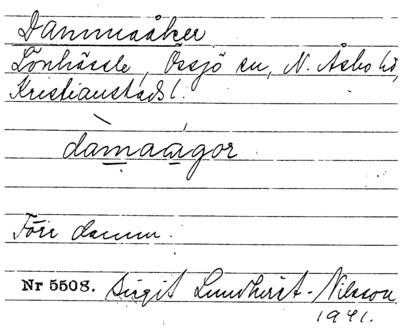 Dammaåker
Lönhässle, Össjö sn, N. Åsbo hd,
Kristianstads l.
damaågor
Före damm.
Nr 5508. Birgit Lundkvist-Nilsson
1941.